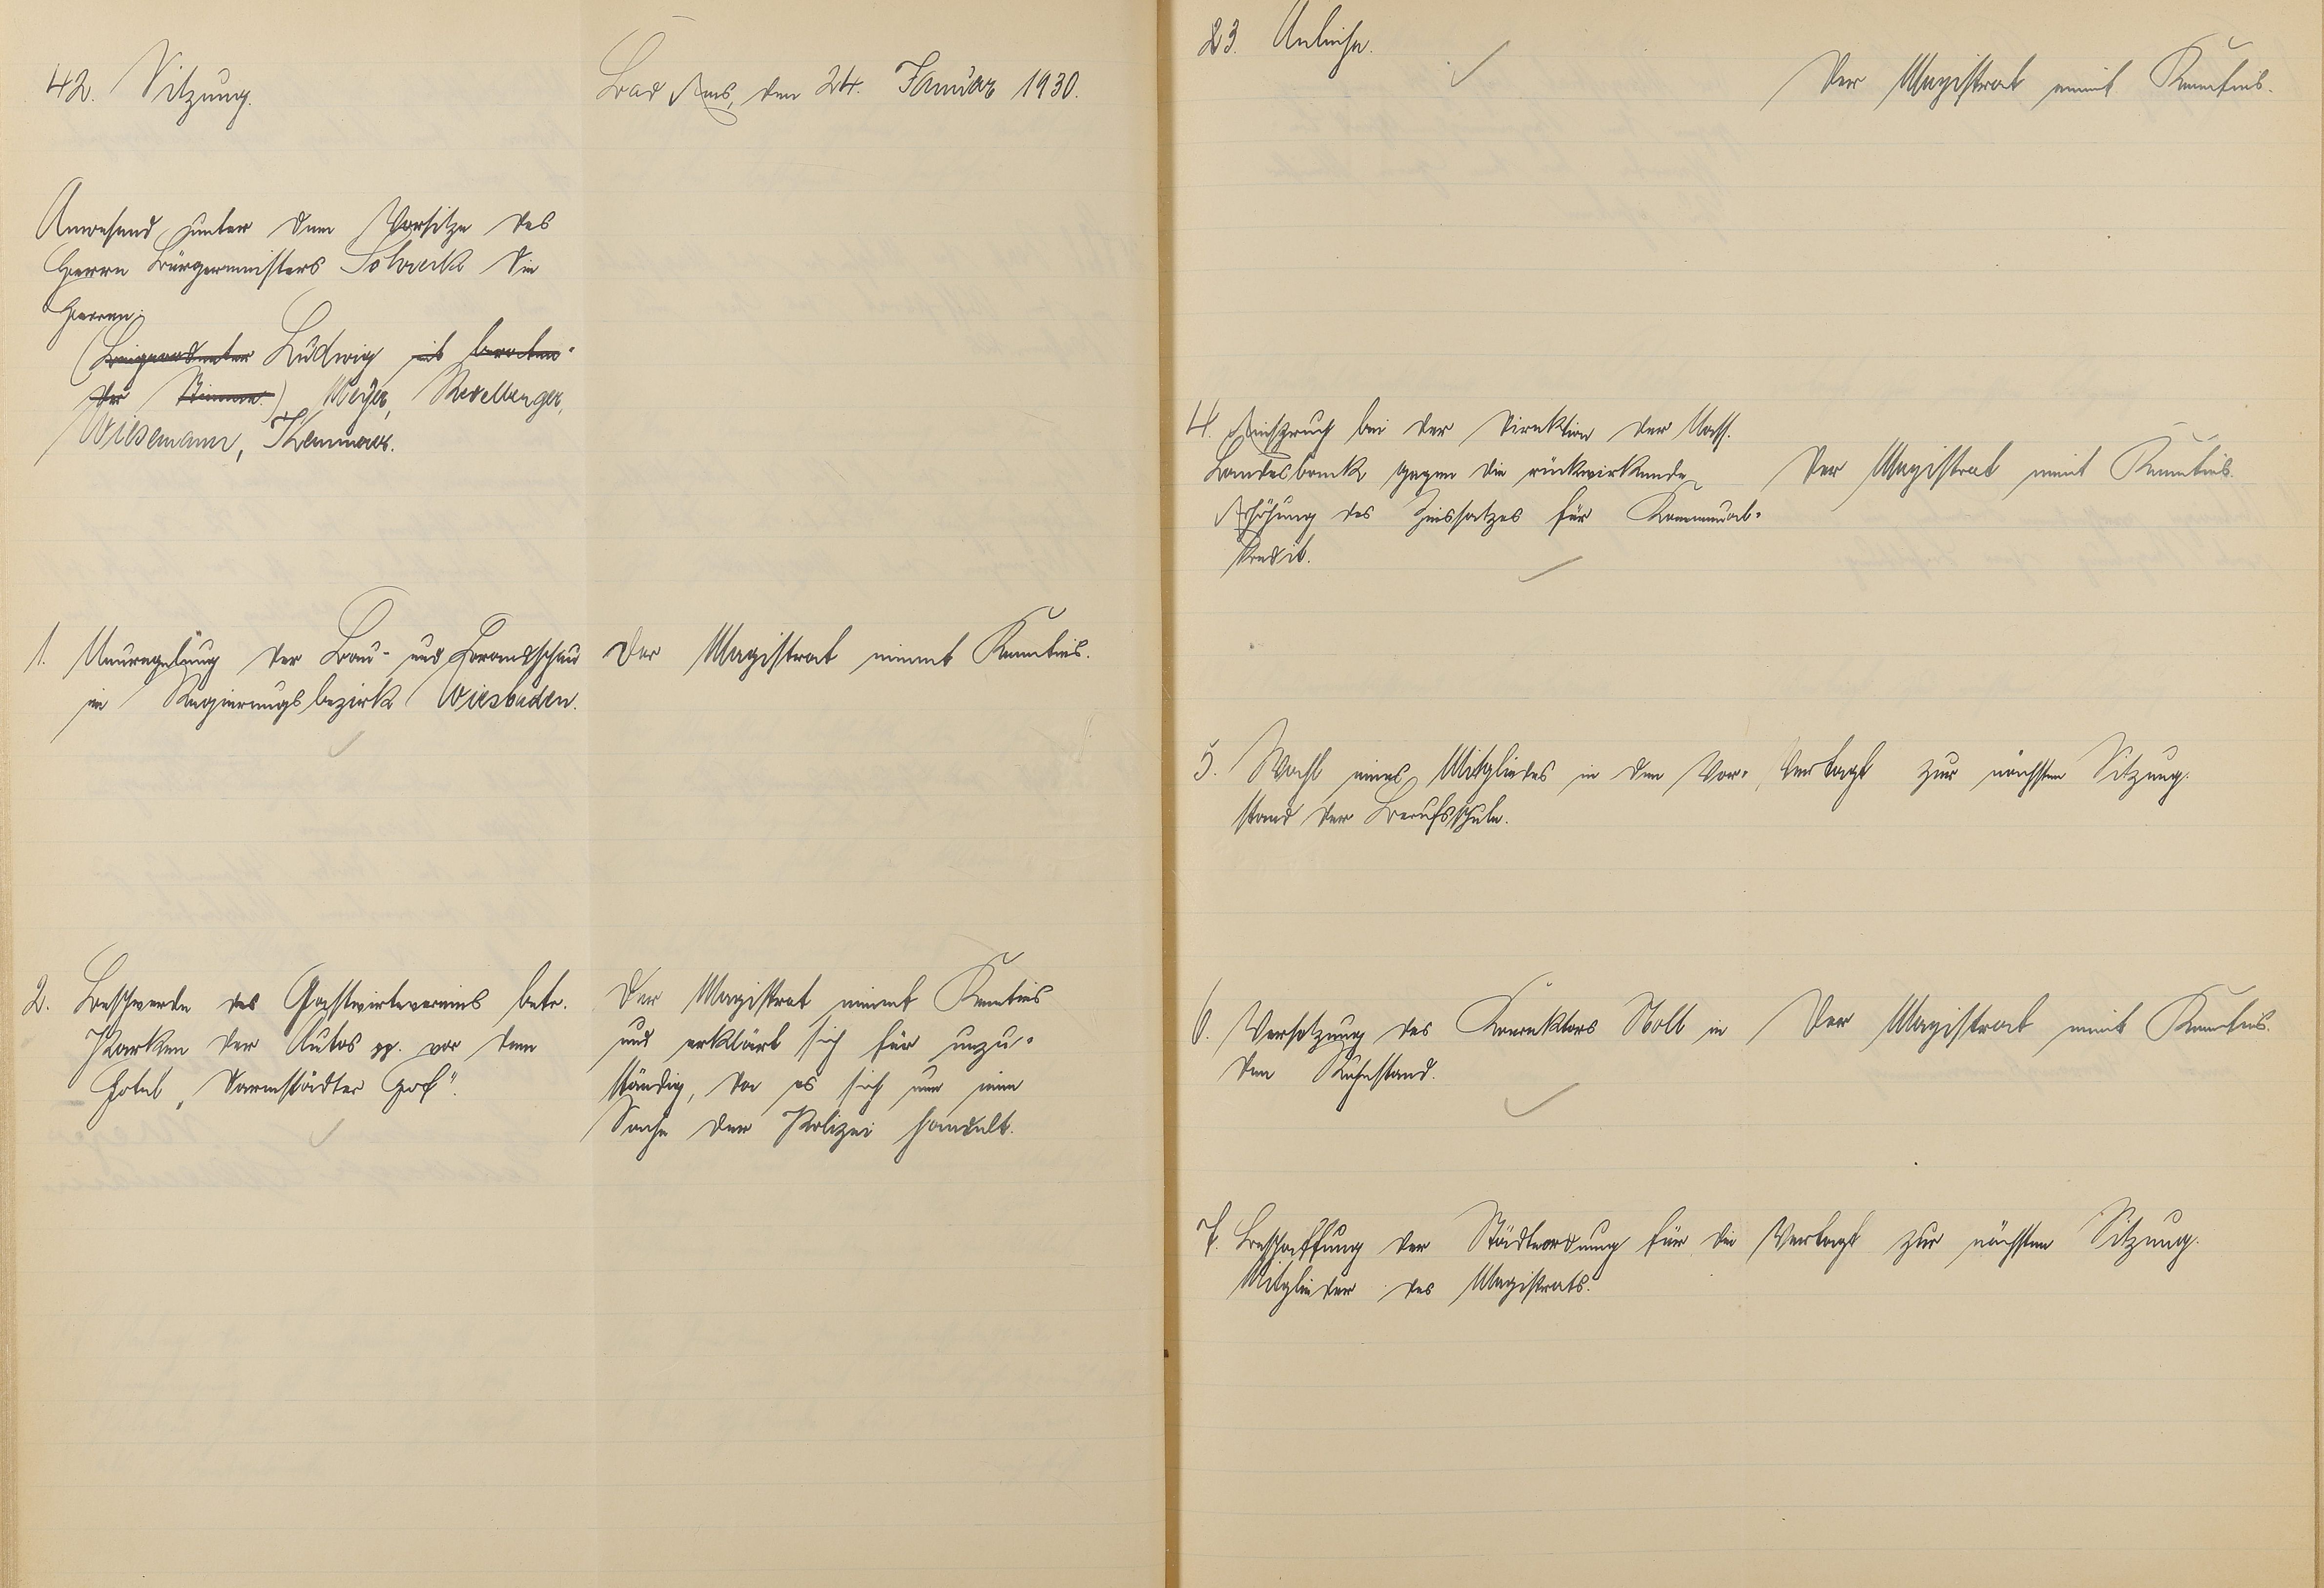 42. Sitzung.
Bad Ems, den 24. Januar 1930.
Anwesend unter dem Vorsitze des
Herrn Bürgermeisters Schreck die
Herren:
(Beigeordneter Ludwig mit beraten-
der Stimme.) Meyer,
Wiesemann, Themmer.
1. Neuregelung der Bau- und Brandschau
im Regierungsbezirk Wiesbaden.
Der Magistrat nimmt Kenntnis.
2. Beschwerde des Gastwirtevereins betr.
Parken der Autos pp. vor dem
Hotel „Darmstädter Hof".
Der Magistrat nimmt Kenntnis
und erklärt sich für unzu-
ständig, da es sich um eine
Sache der Polizei handelt.
23. Anleihe.
Der Magistrat nimt Kenntnis.
4. Einspruch bei der Direktion der Nass.
Landesbank gegen die rückwirkende
Erhöhung des Zinssatzes für Kommunal-
kredit.
Der Magistrat nimt Kenntnis.
5. Wahl eines Mitgliedes in den Vor-
stand der Berufsschule.
Vertagt zur nächsten Sitzung.
6. Versetzung des Konrektors Noll in
den Ruhestand.
Der Magistrat nimt Kenntnis.
7. Beschaffung der Städteordnung für die
Mitglieder des Magistrats.
Vertagt zur nächsten Sitzung.